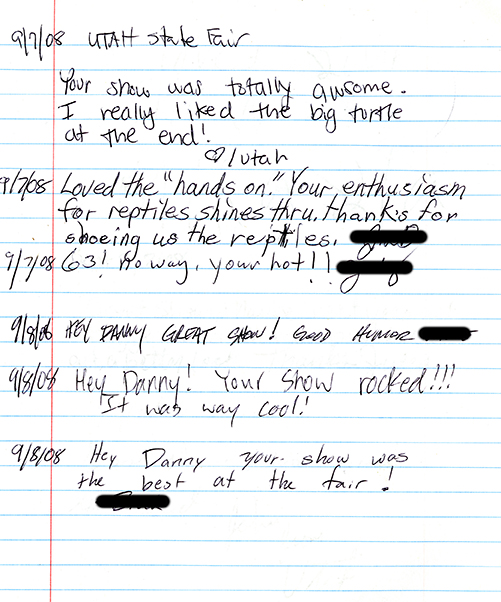 9/7/08 UTAH State Fair
Your show was totally awsome.
I really liked the big turtle
at the end!
♡/Utah
9/7/08 Loved the "hands on." Your enthusiasm
for reptiles shines thru. thanks for
shoeing us the reptiles.
9/7/08 63! no way, your hot!!
9/8/08 HEY DANNY GREAT SHOW! GOOD HUMOR
9/8/08 Hey Danny! Your Show rocked!!!
It was way cool!
9/8/08 Hey Danny your show was
the best at the fair!